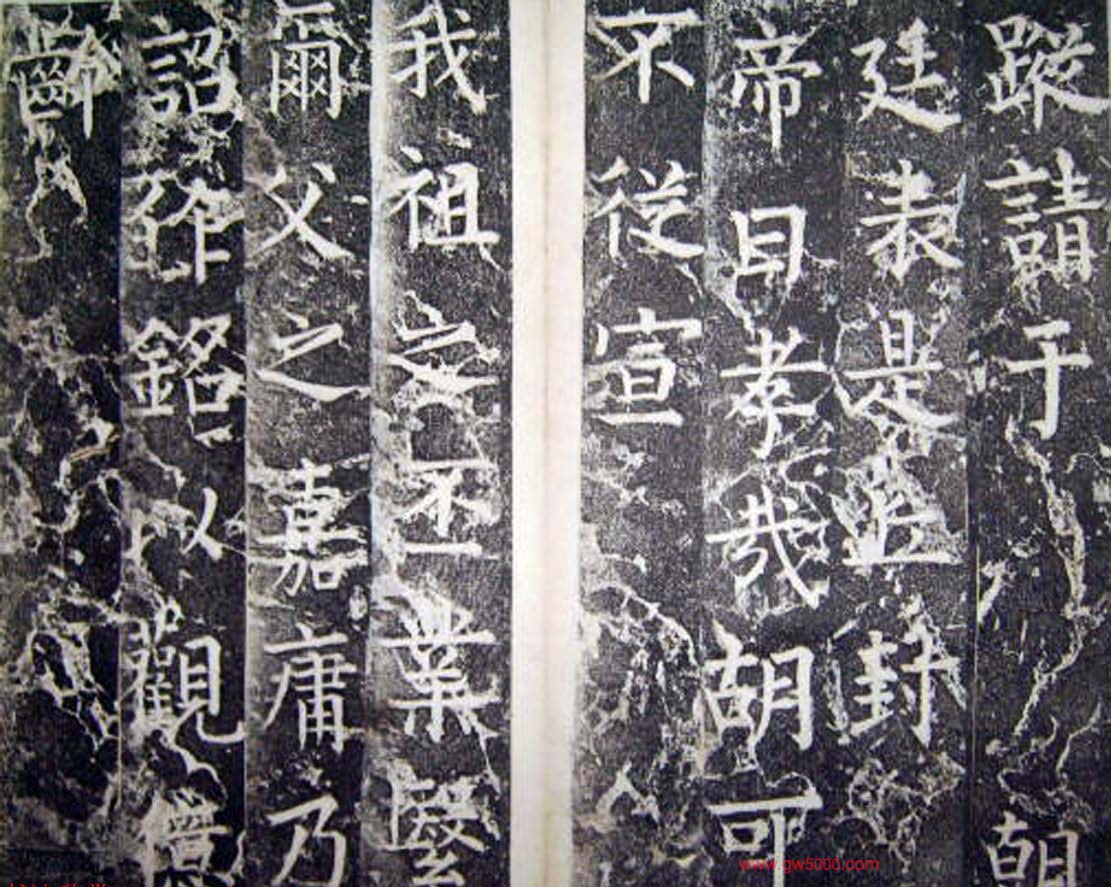 蹤請于朝
廷表是封
帝曰孝哉胡可
不從宣
我祖之丕業繄
爾父之嘉庸乃
詔作銘以觀億
齡
www.gw5000.com